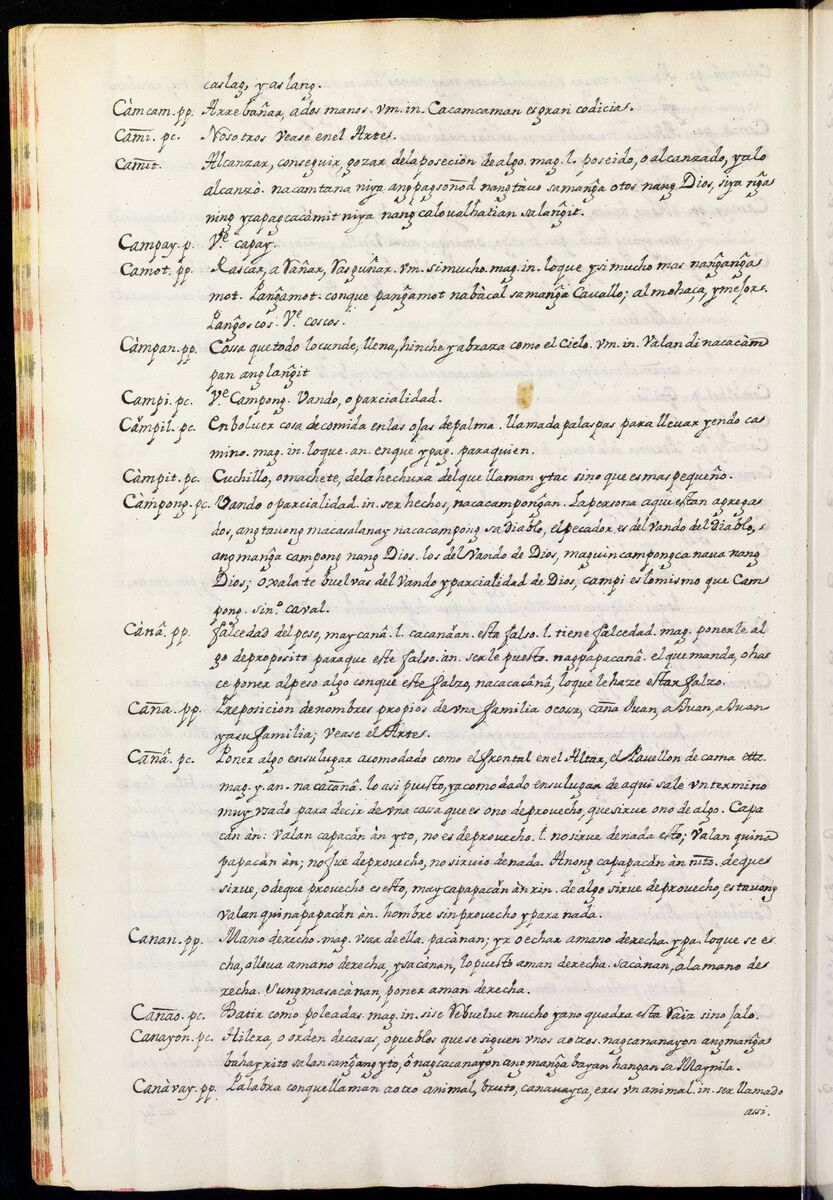 caslag, y aslang.
Càmcam. pp. Arrebañar, a dos manos. vm. in. Cacamcaman es gran codicias.
Cam̃i. pc. Nosotros vease en el Artes.
Cam̃it. Alcanzar, conseguir, gozar dela posecion de algo. mag. l. poseido, o alcanzado, y alo
alcanzò. nacamtana niya ang pagsoñod nang tàuo sa manga otos nang Dios, siya nga
ning ycapagcacàmit niya nang caloualhatian sa langit.
Campay. p. Vᵉ capay.
Camot. pp. Rascar, a rañar, rasguñar. vm. si mucho. mag. in. loque y si mucho mas nangangã
mot. Pangamot. conque pangamot nabàcal sa manga Cavallo; almohaça, y mejor.
Pangoscos. Vᵉ coscos.
Càmpan. pp. Cossa que todo lo cunde, llena, hinche y abraza como el Cielo. vm. in. Valan di nacacàm
pan ang langit
Campi. pc. Vᵉ Campong. Vando, o parcialidad.
Càmpil. pc. Enbolver cosa de comida en las ojas de palma. llamada palaspas para llevar yendo ca
mino. mag. in. loque. an. en que y pag. para quien.
Càmpit. pc. Cuchillo, o machete, dela hechura del que llaman ytac sino que es mas pequeño.
Càmpong. pc. Vando o parcialidad. in. ser hechos, nacacampongan. La persona a qui estan agrega
dos, ang tauong macasalanay nacacampong sa Diablo, el pecador es del Vando del Diablo,
ang manga campong nang Dios. los del Vando de Dios, maguin campong ca naua nang
Dios; oxala te buelvas del Vando y parcialidad de Dios, campi es lo mismo que Cam
pong. sinº. caval.
Cànâ. pp. falcedad del peso, may canâ. l. cacanáan. esta falso. l. tiene falcedad. mag. ponerle al
go de proposito para que este falso. an. serle puesto. nagpapacanâ. el que manda, o ha
ce poner al peso algo con que este falzo, nacacacânâ, lo que le haze estar falzo.
Cañna. pp. Preposicion de nombres propios de vna familia o cosa, caña Juan, a Juan, a Juan
y a su familia; vease el Artes.
Cañâ. pc. Poner algo en su lugar acomodado como el frontal en el Altar, el Pavellon de cama ettc.
mag. y. an. nacacañâ. lo asi puesto, y acomodado en su lugar de aqui sale vn termino
muy vsado para decir de vna cossa que es o no de provecho, que sirve o no de algo. Capa
cán àn: valan capacán àn yto, no es de provecho. l. no sirve de nada esto; Valan quina
papacán àn; no fue de provecho, no sirvio de nada. Anong capapacán àn nito. de que
sirve, o de que provecho es esto, may capapacán àn rin. de algo sirve de provecho, es tauong
valan quinapapacán àn. hombre sin provecho y para nada.
Canan. pp. Mano derecho. mag. vsar de ella. pacànan; yr o echar a mano derecha. y pa. loque se e
cha, o lleva a mano derecha, y sacánan, lo puesto a man derecha. Sacànan, a la mano de
recha. Sungmasacànan, poner a man derecha.
Cañao. pc. Batir como poleadas. mag. in. si se rebuelve mucho y a no quadra esta raiz sino salo.
Canayon. pc. Hilera, o orden de casas, o pueblos que se siguen vnos a otros. nagcananayon ang manga
bahay rito sa lansangang yto, ô nagcacanayon ang manga bayan hangan sa Maynila.
Canàvay. pp. Palabra con que llaman a otro animal, bruto, canavay ca, eres vn animal. in. ser llamado
assi.